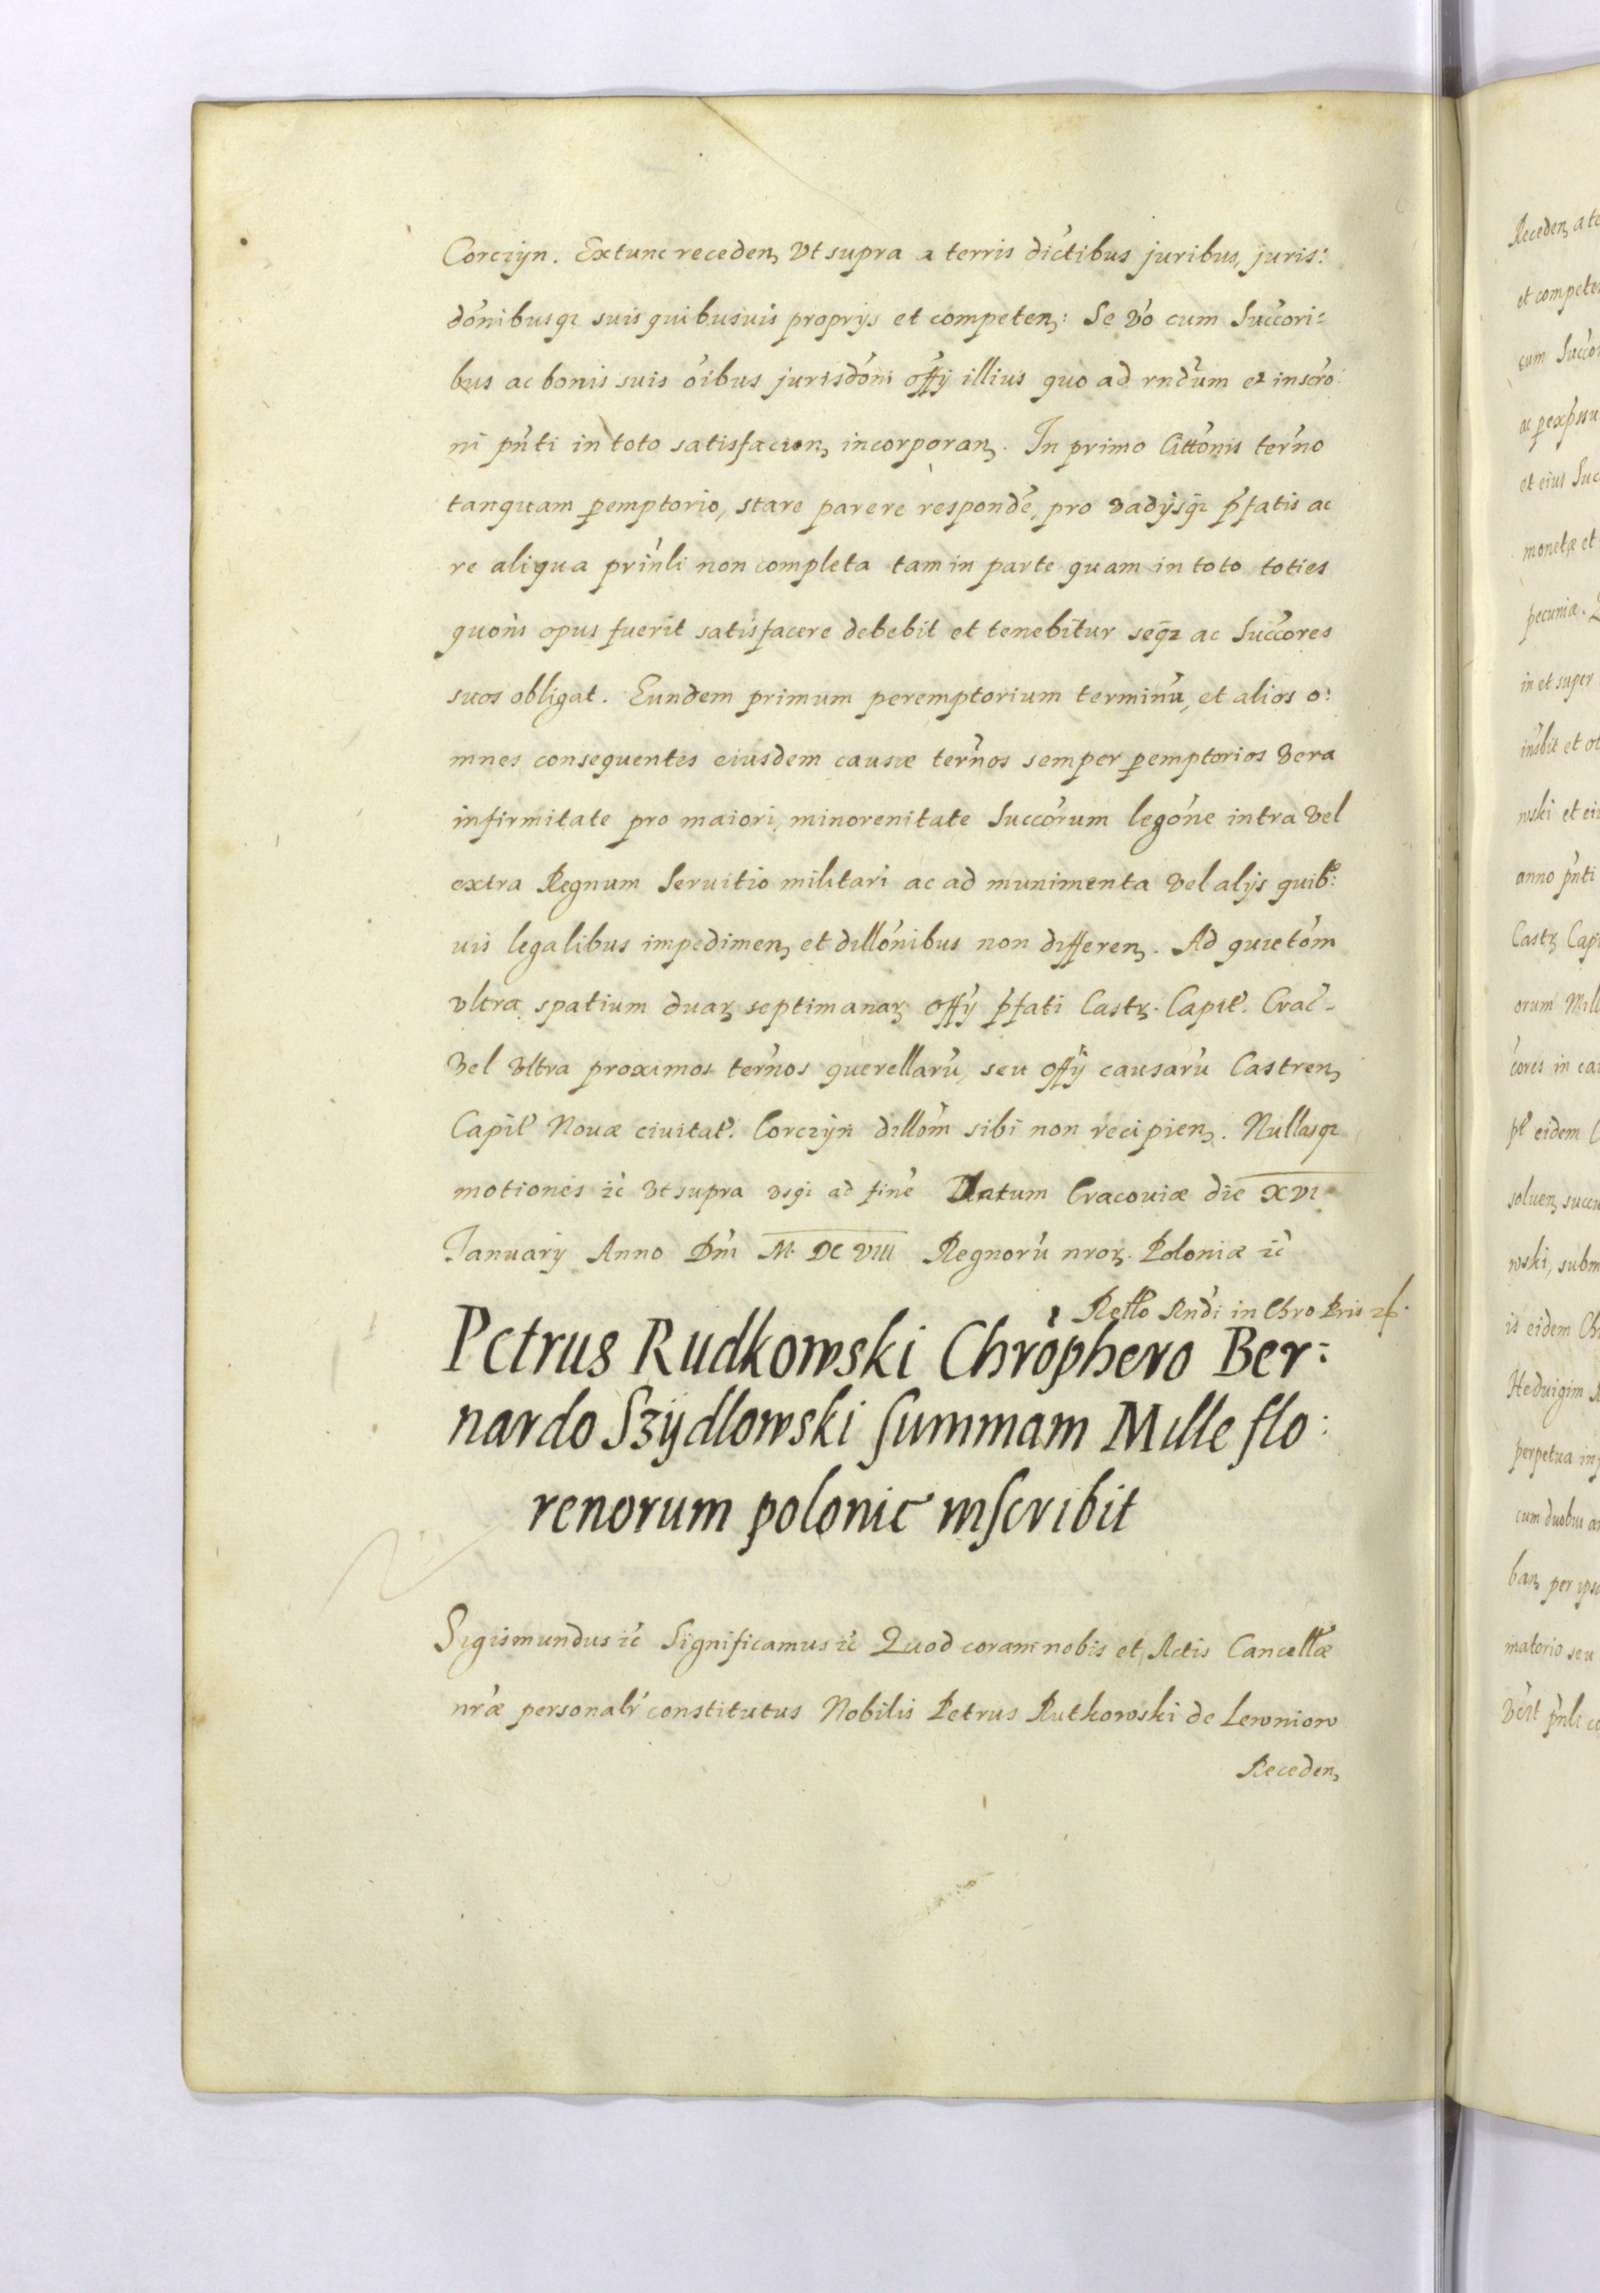 Corczyn. Extunc receden, vt supra a terris dictibus juribus, juris:
dōnibusq suis quibusuis proprijs et competen: Se vō cum Succori=
bus ac bonis suis ōibus jurisdōni offy illius quo ad rndūm et inscrō
ni pn̄ti in toto satisfacien, incorporan. In primo Cittōnis ter̄no
tanquam pemptorio, stare parere respondē, pro vadijsq p̄fatis ac
re aliqua prin̄li non completa tam in parte quam in toto toties
quōns opus fuerit satisfacere debebit et tenebitur seq ac Succores
suos obligat. Eundem primum peremptorium terminū, et alios o:
mnes consequentes eiusdem causæ ter̄nos semper pemptorios vera
infirmitate pro maiori, minorenitate Succōrum legōne intra vel
extra Regnum Seruitio militari ac ad munimenta vel alijs quib:
uis legalibus impedimen, et dillōnibus non differen. Ad quietōm
vltra spatium duaꝝ septimanaꝝ offy p̄fati Castꝝ. Capit. Crac̄.
vel vltra proximos ter̄nos querellarū, seu offy causarū Castren,
Capit Nouæ ciuitat. Corczyn dillōm sibi non recipien. Nullasq
motiones ic̄ vt supra vsq ad finē Datum Cracouiæ die XVI
January Anno Dn̄i M. DC VIII Regnorū nroꝝ. Poloniæ ic̄
Rn̄di in Chro Pris
Petrus Rudkowski Chrōphero Ber=
nardo Szydlowski summam Mille flo:
renorum polonic inscribit
Sigismundus ic̄ Significamus ic̄ Quod coram nobis et Actis Cancellæ
nræ personalr̄ constitutus Nobilis Petrus Rutkowski de Lewniow
Receden,
Receden, a te
et compete
cum Succo
et eius Suc
monetæ et
pecuniæ.
in et super
wski et ei
anno pn̄ti
Castꝝ Capi
orum Mill
cores in ca
eidem
soluen, succu
wski, subm
is eidem Ch
Heduigim
perpetua in
cum duobus a
ban, per ips
matorio seu